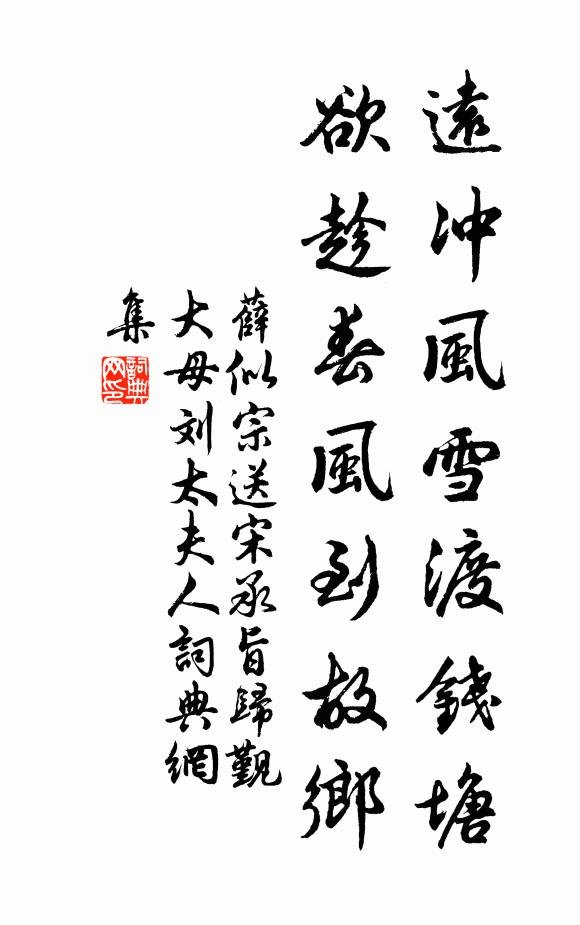 遠冲風雪渡錢塘
欲趁春風到故鄉
薛似宗送宋承旨歸觐
大母刘太夫人詞典網
集
詞典網印